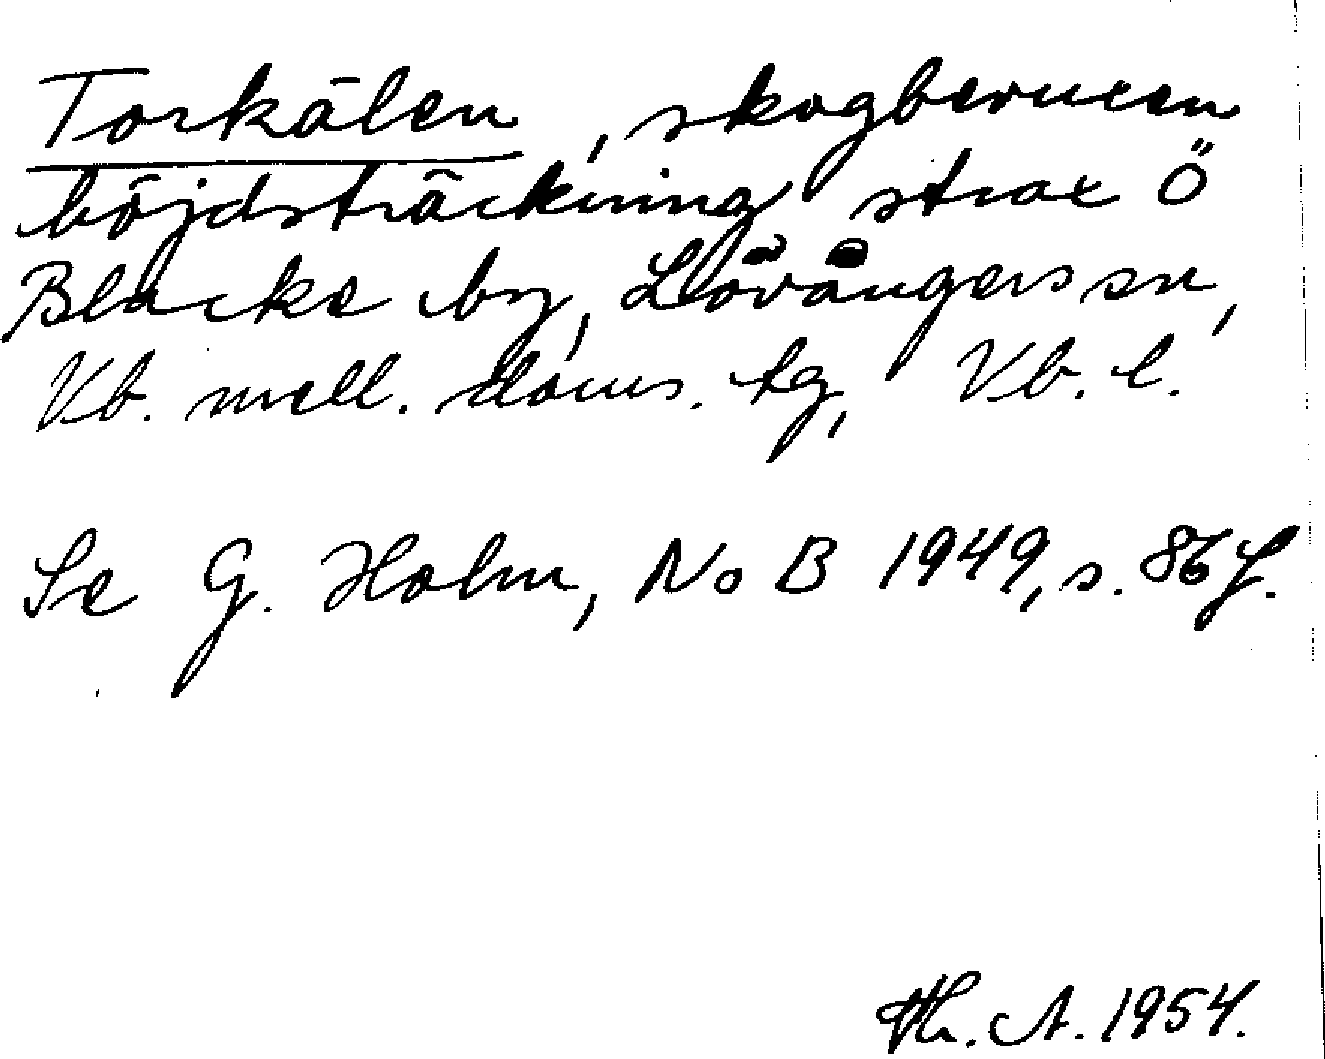 Torkälen, skogbevuxen
höjdsträckning strax Ö
Blacke by, Lövångers sn,
Vb. mell. doms. tg, Vb. l.
Se G. Holm, NoB 1949, s. 86 f.
Th. A. 1954.